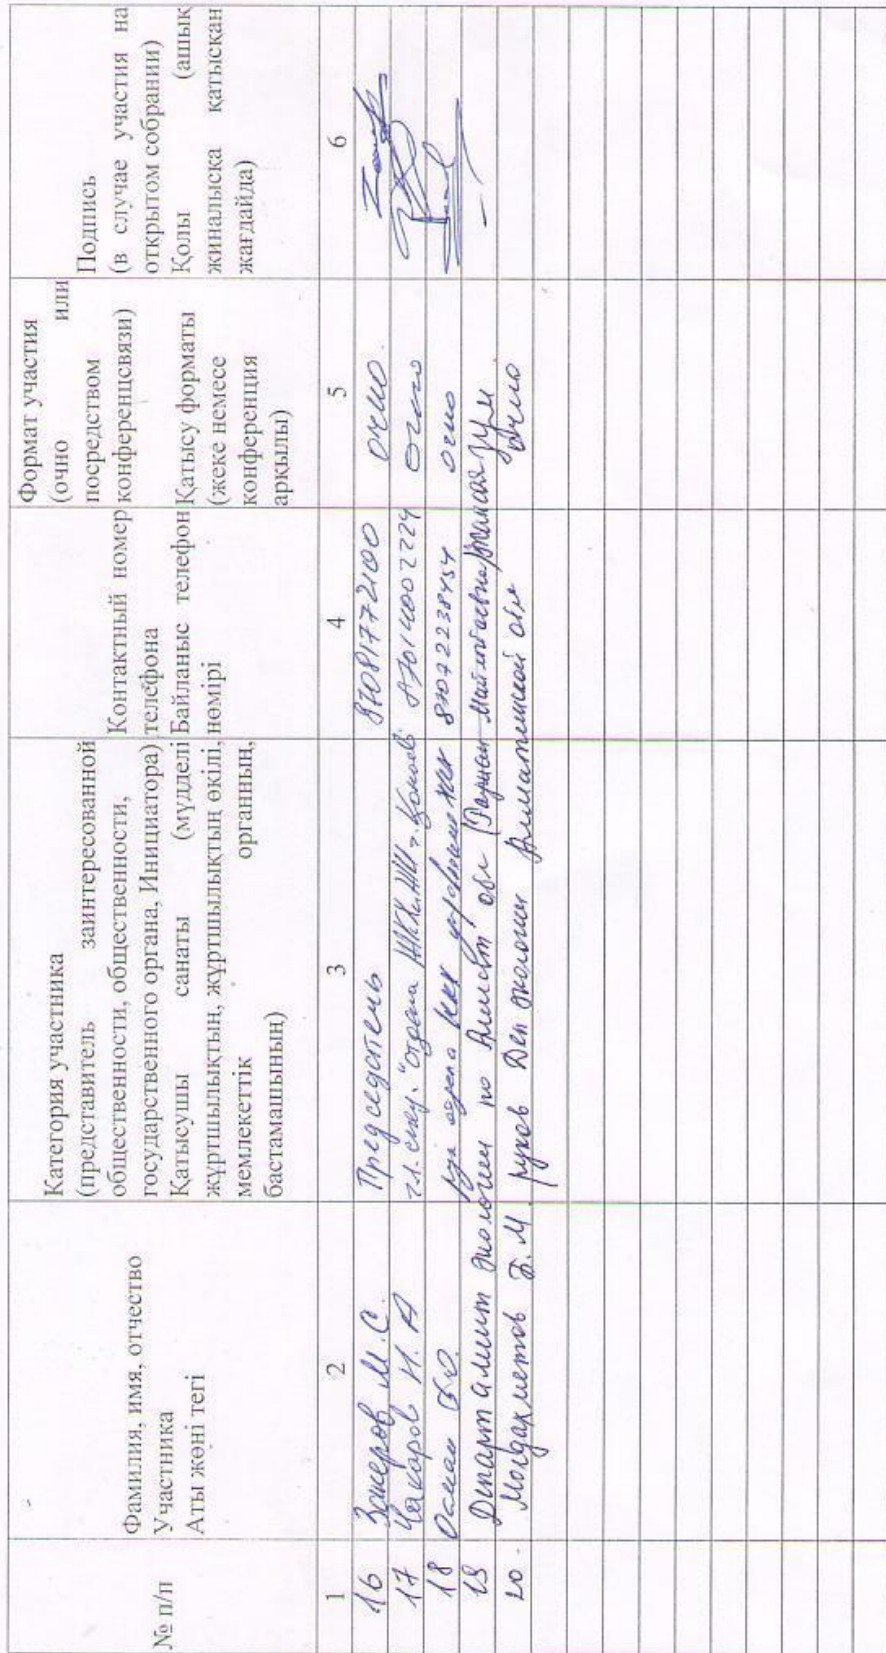 № п/п
Фамилия, имя, отчество
Участника
Аты жөні тегі
Категория участника
(представитель заинтересованной
общественности, общественности,
государственного органа, Инициатора)
Қатысушы санаты (мүдделі
жұртшылықтың, жұртшылықтың өкілі,
мемлекеттік органның,
бастамашының)
Контактный номер
телефона
Байланыс телефон
нөмірі
Формат участия
(очно или
посредством
конференцсвязи)
Қатысу форматы
(жеке немесе
конференция
арқылы)
Подпись
(в случае участия на
открытом собрании)
Қолы (ашық
жиналысқа қатысқан
жағдайда)
1 2 3 4 5 6
16 М.С. Председатель 87081772100 очно
17 И. А гл. спец. "Отдела ЖКХ и ЖИ г. Қонаев" очно
18 Осман отдела 87072238454 очно
19 Департамент экологии по Алмат обл
20. Молдахметов Б.М. руков Деп экологии Алматинской обл очно